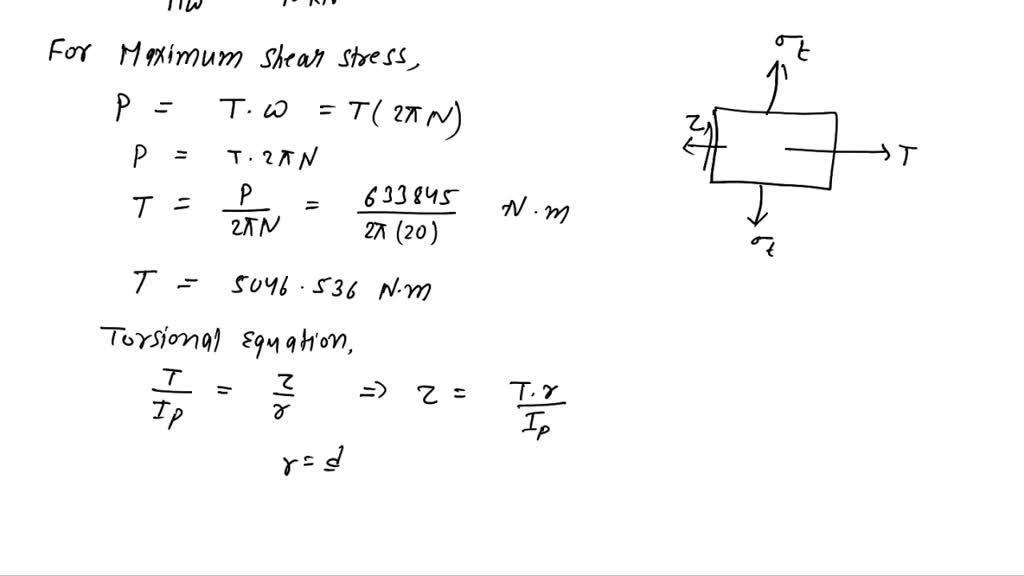 For Maximum shear stress,
P = T·ω = T(2πN)
P = T·2πN
T = P/2πN = 633845/2π(20) N·m
T = 5046.536 N·m
Torsional Equation,
T/Ip = τ/r ⇒ τ = T·r/Ip
r = d
σt
τ
T
σt